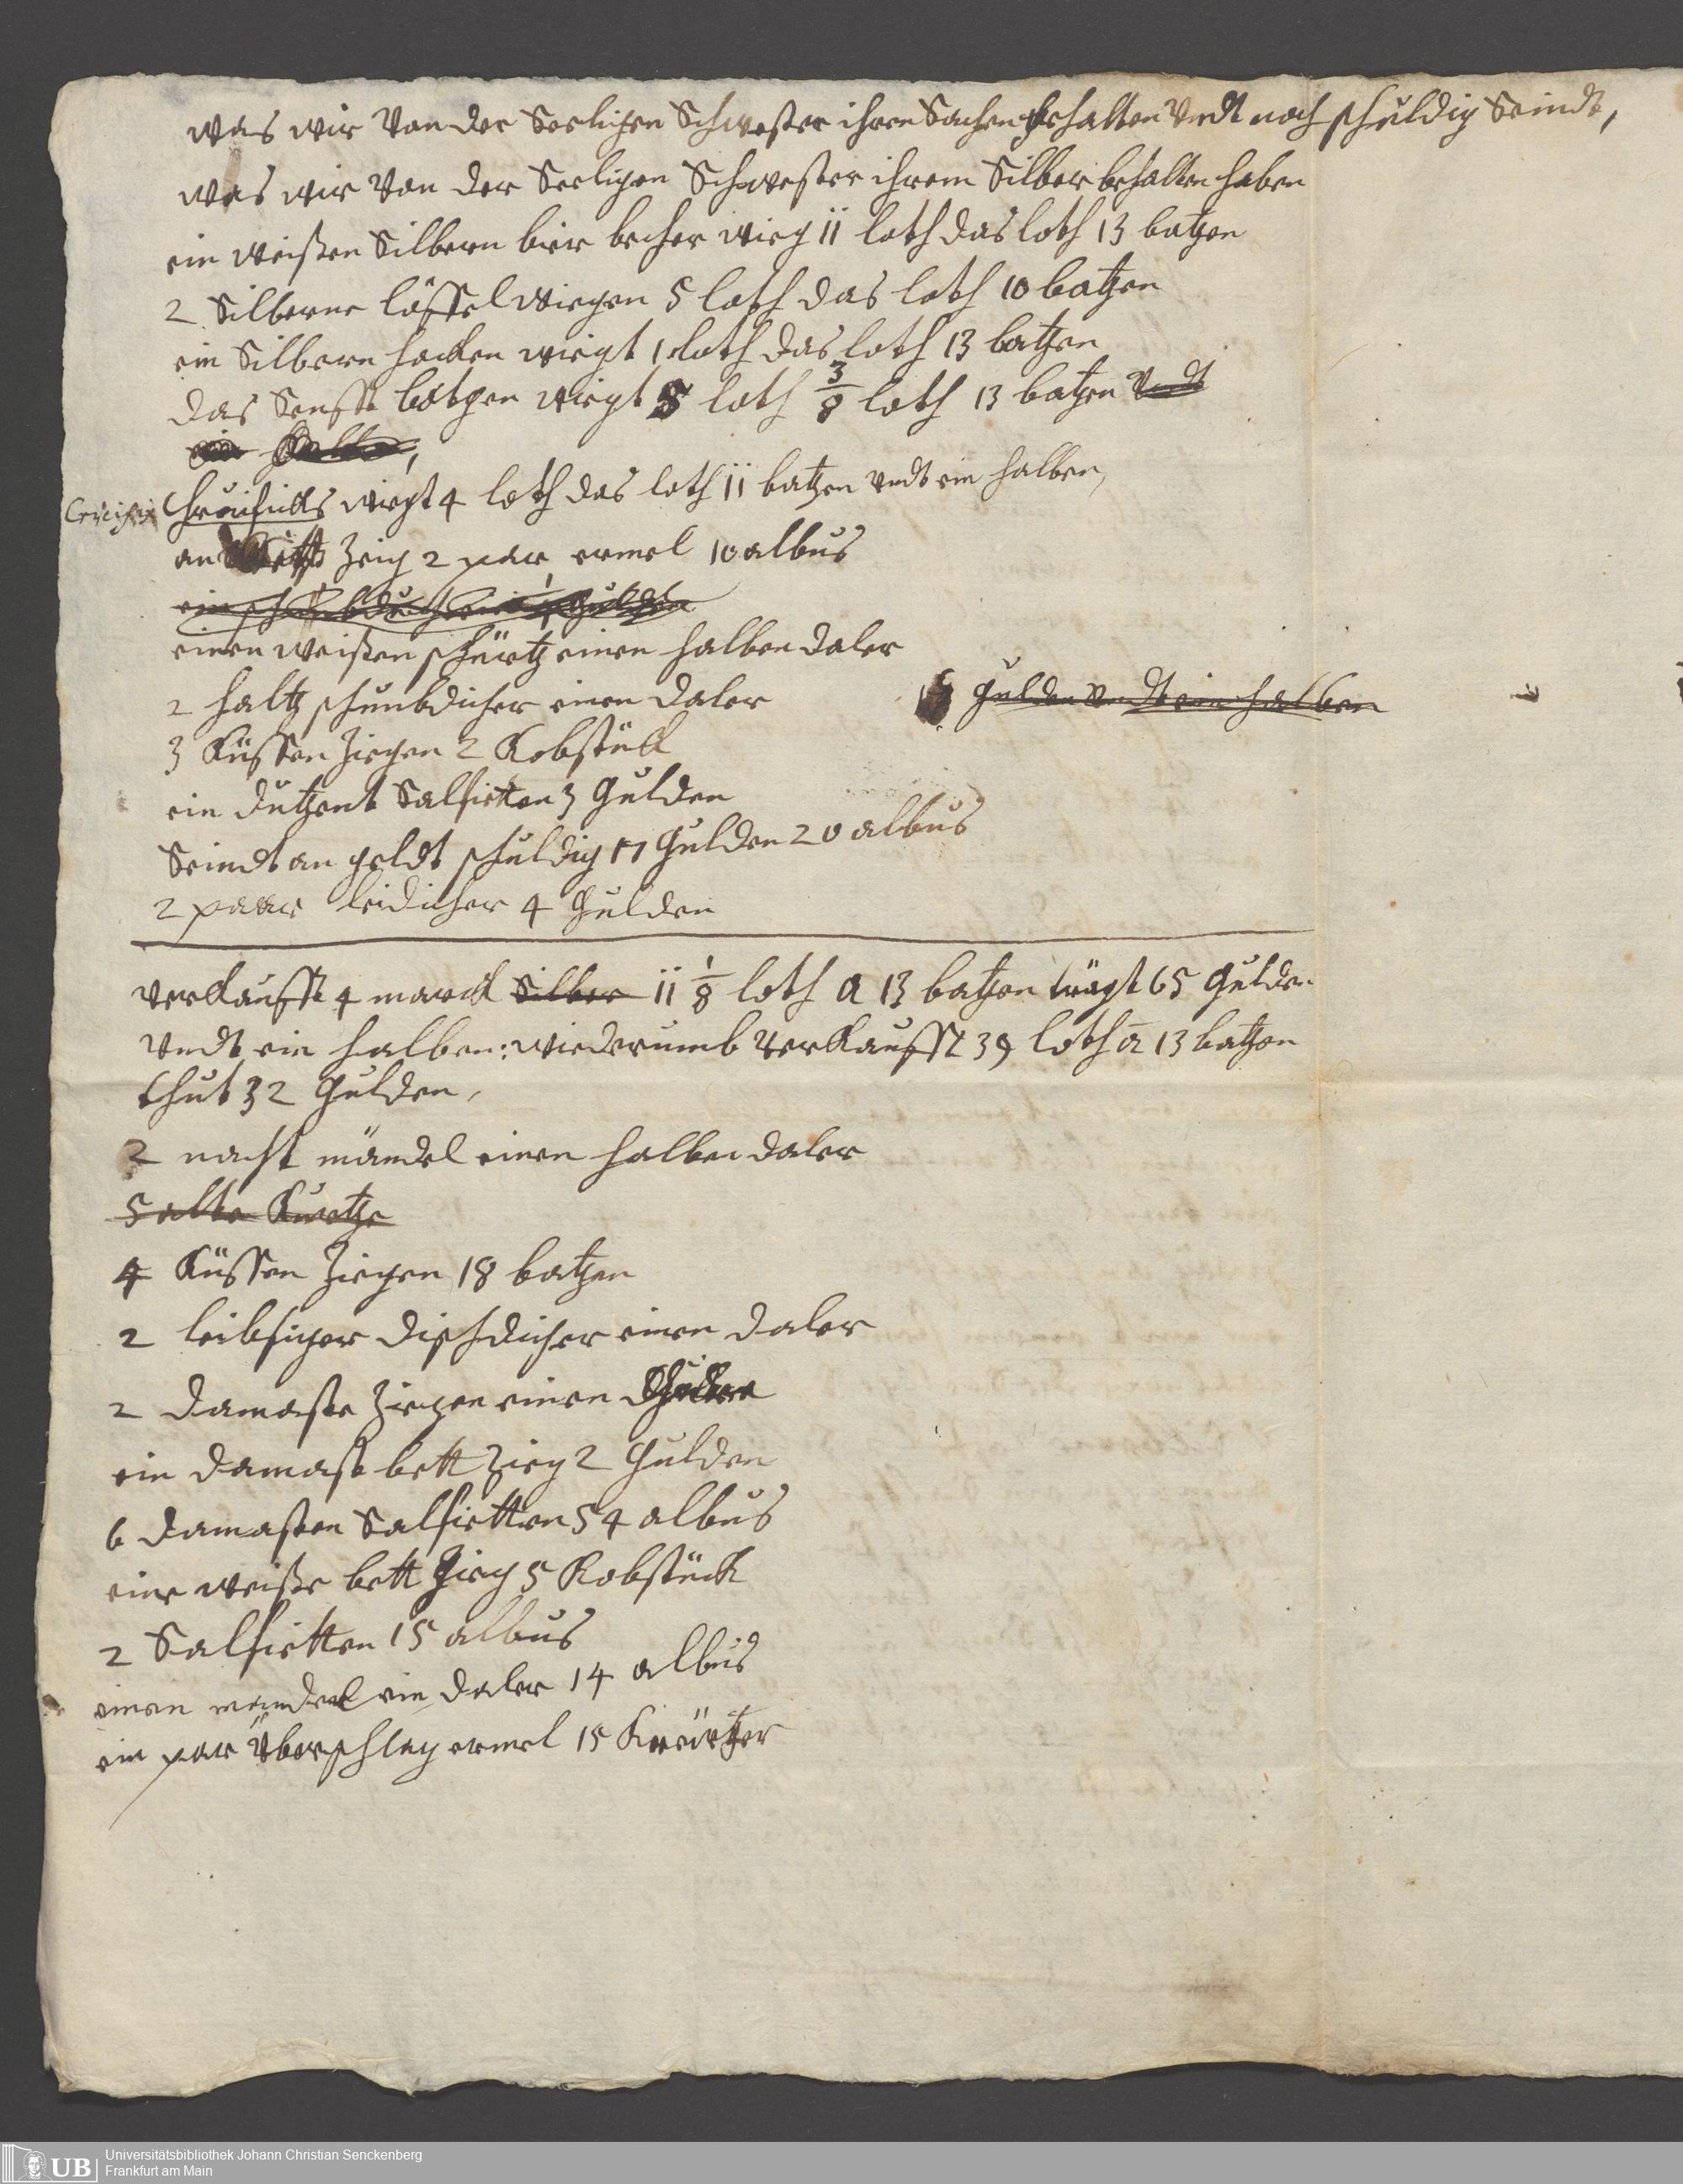 was wir Von der Seeligen Schwester ihren Sachen behalten Vndt noch schuldig Seindt,
was wir Von der Seeligen Schwester ihrem Silber behalten haben
ein weißen Silbern bier becher wieg 11 loth das loth 13 batzen
2 Silberne löffel wiegen 5 loth das loth 10 batzen
ein Silbern hacken wiegt 1 loth das loth 13 batzen
das Senfft botgen wiegt 5 loth 3/8 loth 13 batzen Vndt
ein halben,
Crucifix Chrucificks wiegt 4 loth das loth 11 batzen Vndt ein halben,
an Zeig 2 par ermel 10 albus
ein gulden
einen weißen schürtz einen halben daler
2 haltz schnubdicher einen daler
gulden Vndt ein halben
3 Küssen Ziegen 2 Kobstück
ein dutzent Salfietten 3 Gulden
Seindt an geldt schuldig 17 Gulden 20 albus
2 paar leidicher 4 Gulden
Verkaufft 4 marck Silber 11 1/8 loth a 13 batzen trägt 65 Gulden
Vndt ein halben: wiederumb Verkaufft 39 loth a 13 batzen
thut 32 Gulden,
2 nacht mändel einen halben daler
5 alte Kurtze
4 Küssen Ziegen 18 batzen
2 leibsiger dischdicher einen daler
2 damaste Ziegen einen
ein damast bett Zieg 2 Gulden
6 damasten Salfietten 54 albus
eine weiße bett Zieg 5 Kobstück
2 Salfietten 15 albus
einen mandel ein daler 14 albus
ein par Überschlag ermel 15 Kreützer
UB Universitätsbibliothek Johann Christian Senckenberg
Frankfurt am Main